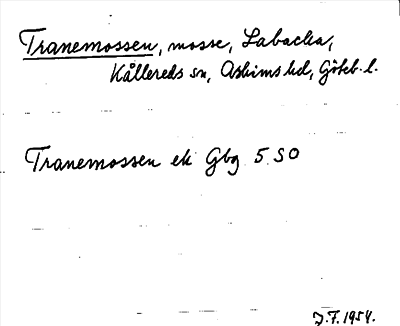 Tranemossen, mosse, Labacka,
Kållereds sn, Askims hd, Göteb. l.
Tranemossen ek Gbg 5 SO
J.F. 1954.